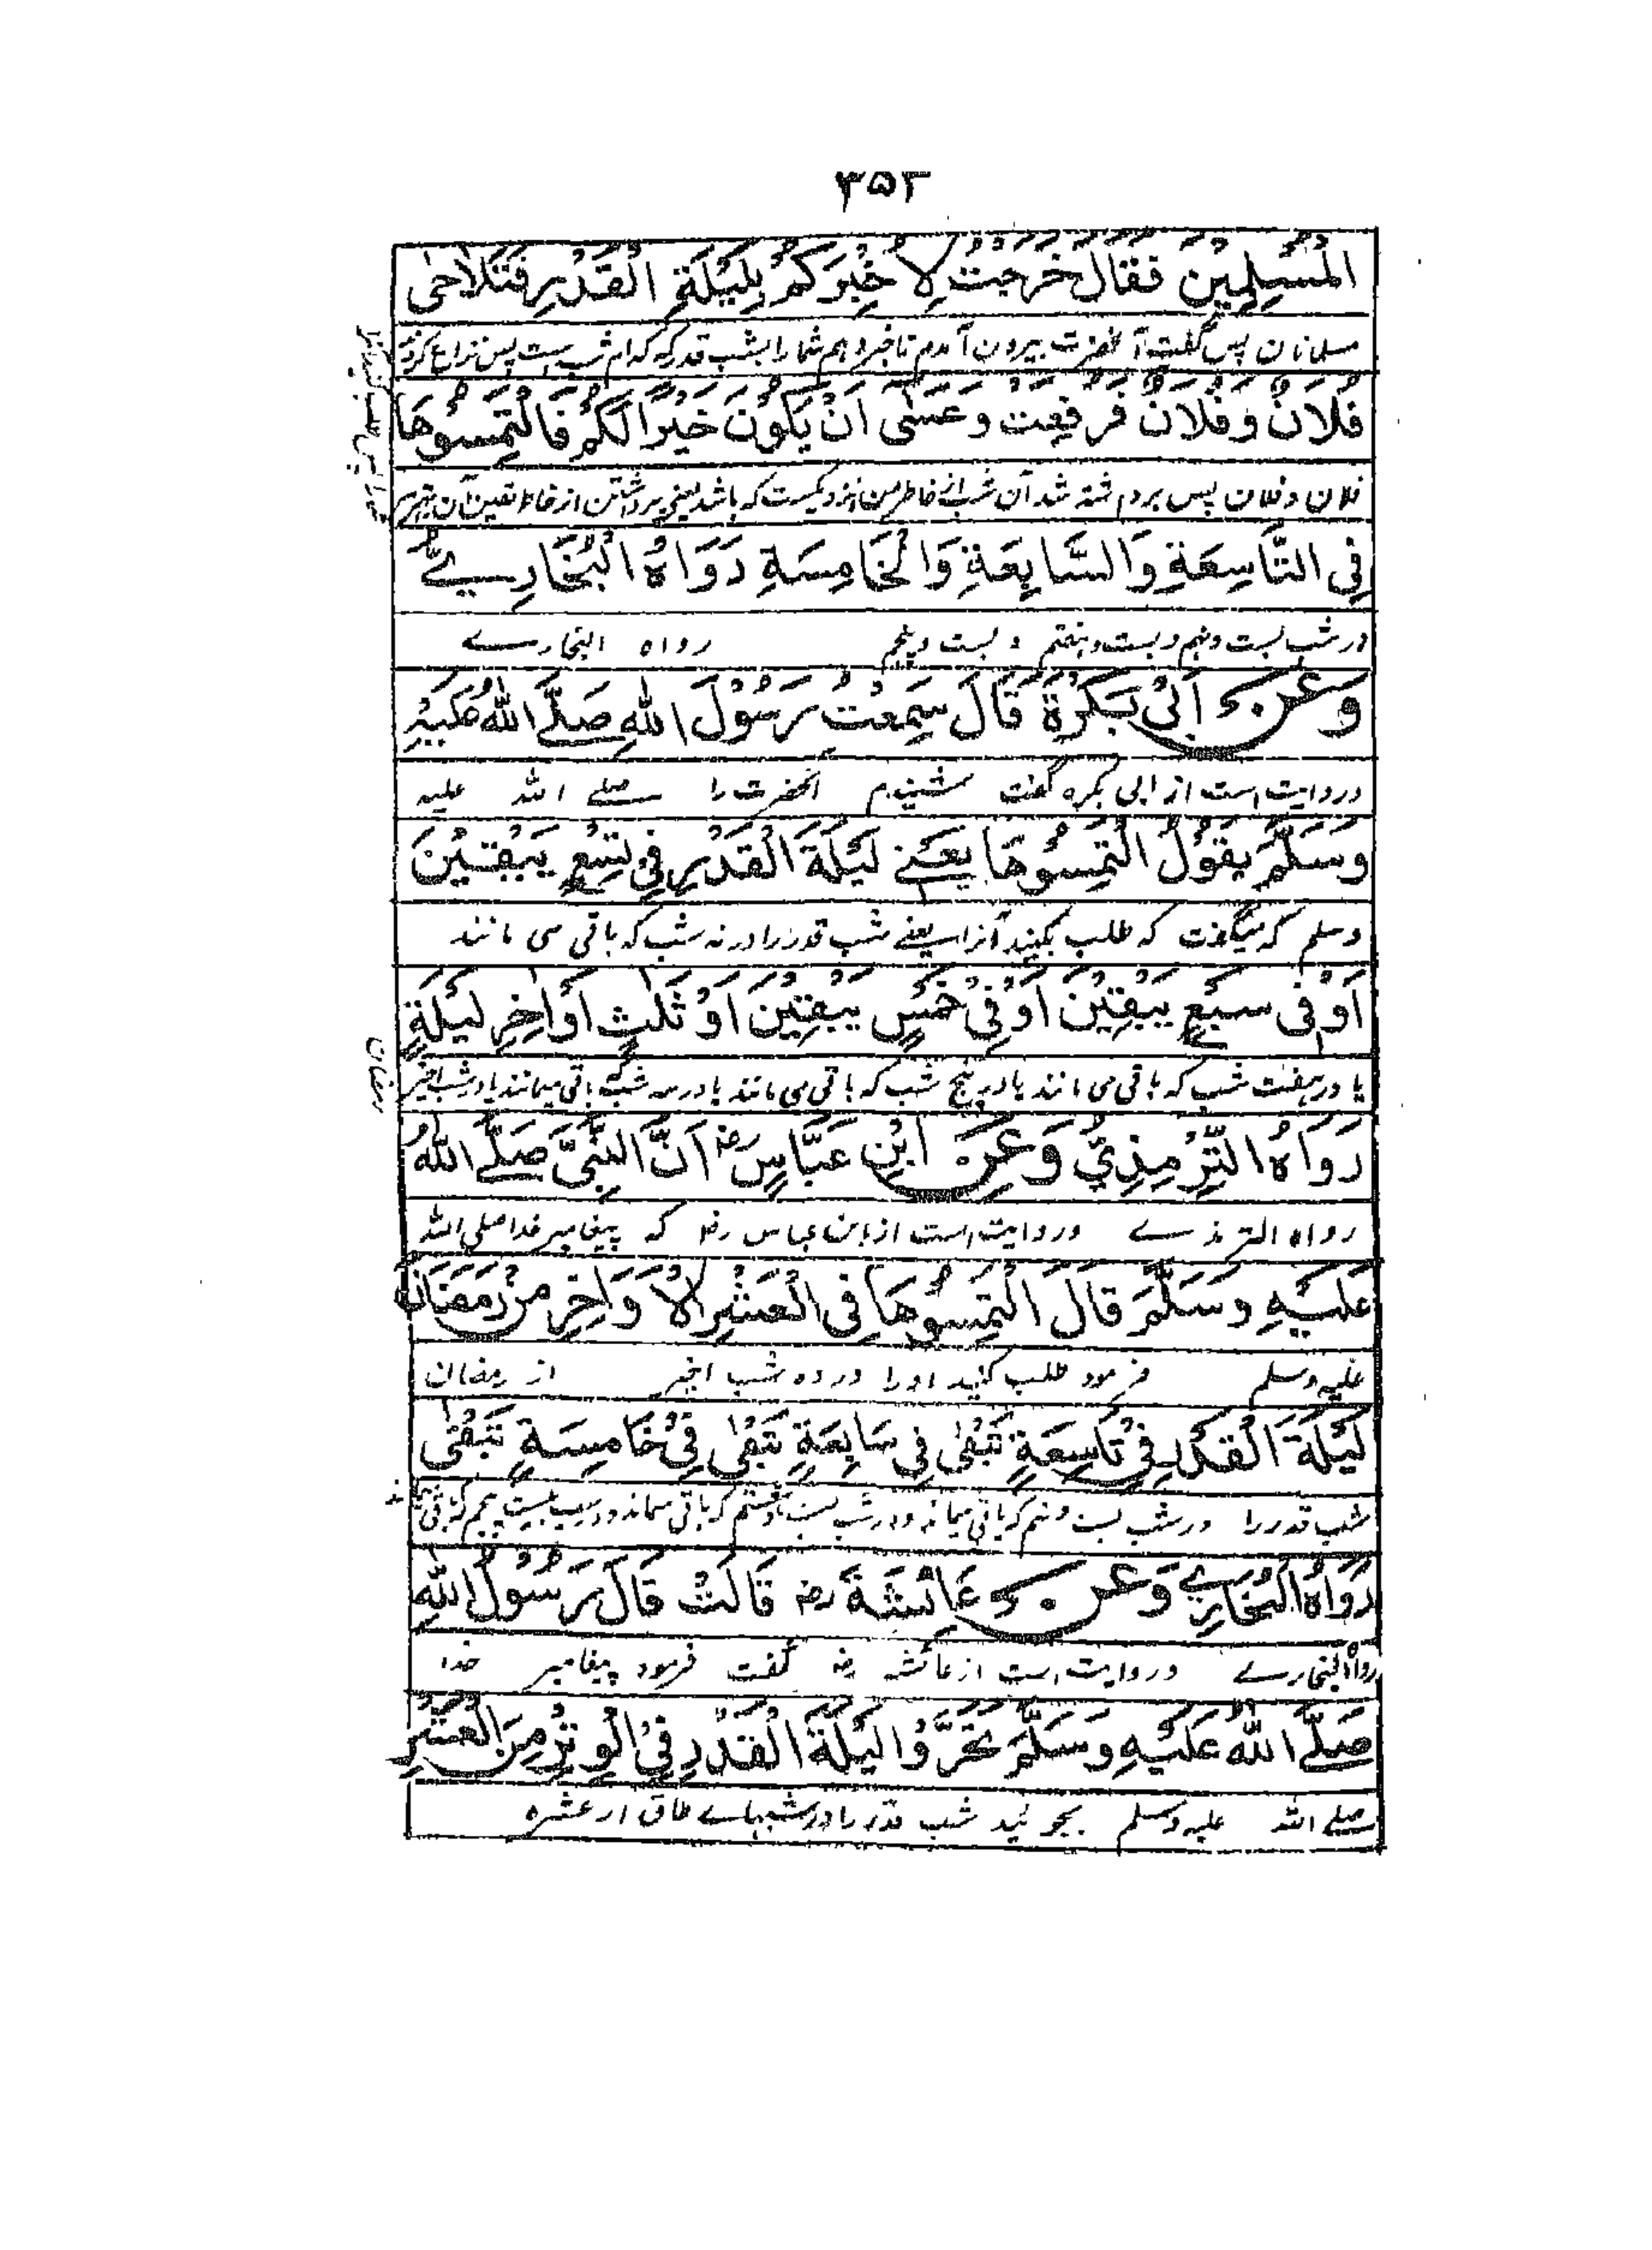 ۳۵۲
الْمُسْلِمِيْنَ فَقَالَ خَرَجْتُ لِاُخْبِرَكُمْ بِلَيْلَةِ الْقَدْرِ فَتَلَاحٰى
مسلمانان پس گفت آنحضرت بیرون آمدم تا خبر دهم شما را بشب قدر که کدام شب است پس نزاع کردند
فُلَانٌ وَفُلَانٌ فَرُفِعَتْ وَعَسٰى اَنْ يَكُوْنَ خَيْرًا لَكُمْ فَالْتَمِسُوْهَا
فلان و فلان پس برداشته شد آن شب از خاطر من و نزدیکست که باشد یعنی برداشتن از خاطر تعین آن بهتر
فِى التَّاسِعَةِ وَالسَّابِعَةِ وَالْخَامِسَةِ رَوَاهُ الْبُخَارِيُّ
در شب بست و نهم و بست و هفتم و بست و پنجم رواه البخارے
وَعَنْ اَبِىْ بَكْرَةَ قَالَ سَمِعْتُ رَسُوْلَ اللهِ صَلَّے اللهُ عَلَيْهِ
و روایت است از ابی بکره گفت شنیدم آنحضرت را صلے الله علیه
وَسَلَّمَ يَقُوْلُ الْتَمِسُوْهَا يَعْنِے لَيْلَةَ الْقَدْرِ فِى تِسْعٍ يَبْقَيْنَ
وسلم که میگفت که طلب بکنید آنرا یعنے شب قدر را در نه شب که باقی می مانند
اَوْ فِى سَبْعٍ يَبْقَيْنَ اَوْ فِىْ خَمْسٍ يَبْقَيْنَ اَوْ ثَلٰثٍ اَوْ اٰخِرِ لَيْلَةٍ
یا در هفت شب که باقی می مانند یا در پنج شب که باقی می مانند یا در سه شب که باقی میمانند یا در شب اخیر
رمضان
رَوَاهُ التِّرْمِذِيُّ وَعَنِ ابْنِ عَبَّاسٍ رض اَنَّ النَّبِىَّ صَلَّے اللهُ
رواه الترمذے و روایت است از ابن عباس رض که پیغامبر خدا صلی الله
عَلَيْهِ وَسَلَّمَ قَالَ الْتَمِسُوْهَا فِى الْعَشْرِ الْاَوَاخِرِ مِنْ رَمَضَانَ
علیه وسلم فرمود طلب کنید او را در ده شب اخیر از رمضان
لَيْلَةَ الْقَدْرِ فِىْ تَاسِعَةٍ تَبْقٰى فِى سَابِعَةٍ تَبْقٰى فِىْ خَامِسَةٍ تَبْقٰى
شب قدر را در شب بست و نهم که باقی میماند و در شب بست و هفتم که باقی میماند و در شب بیست و پنجم که باقی
رَوَاهُ الْبُخَارِيُّ وَعَنْ عَائِشَةَ رض قَالَتْ قَالَ رَسُوْلُ اللهِ
رواه البخارے و روایت است از عائشه رض گفت فرمود پیغامبر خدا
صَلَّے اللهُ عَلَيْهِ وَسَلَّمَ تَحَرَّوْا لَيْلَةَ الْقَدْرِ فِى الْوِتْرِ مِنَ الْعَشْرِ
صلے الله علیه وسلم بجوئید شب قدر را در شبهاے طاق از عشره